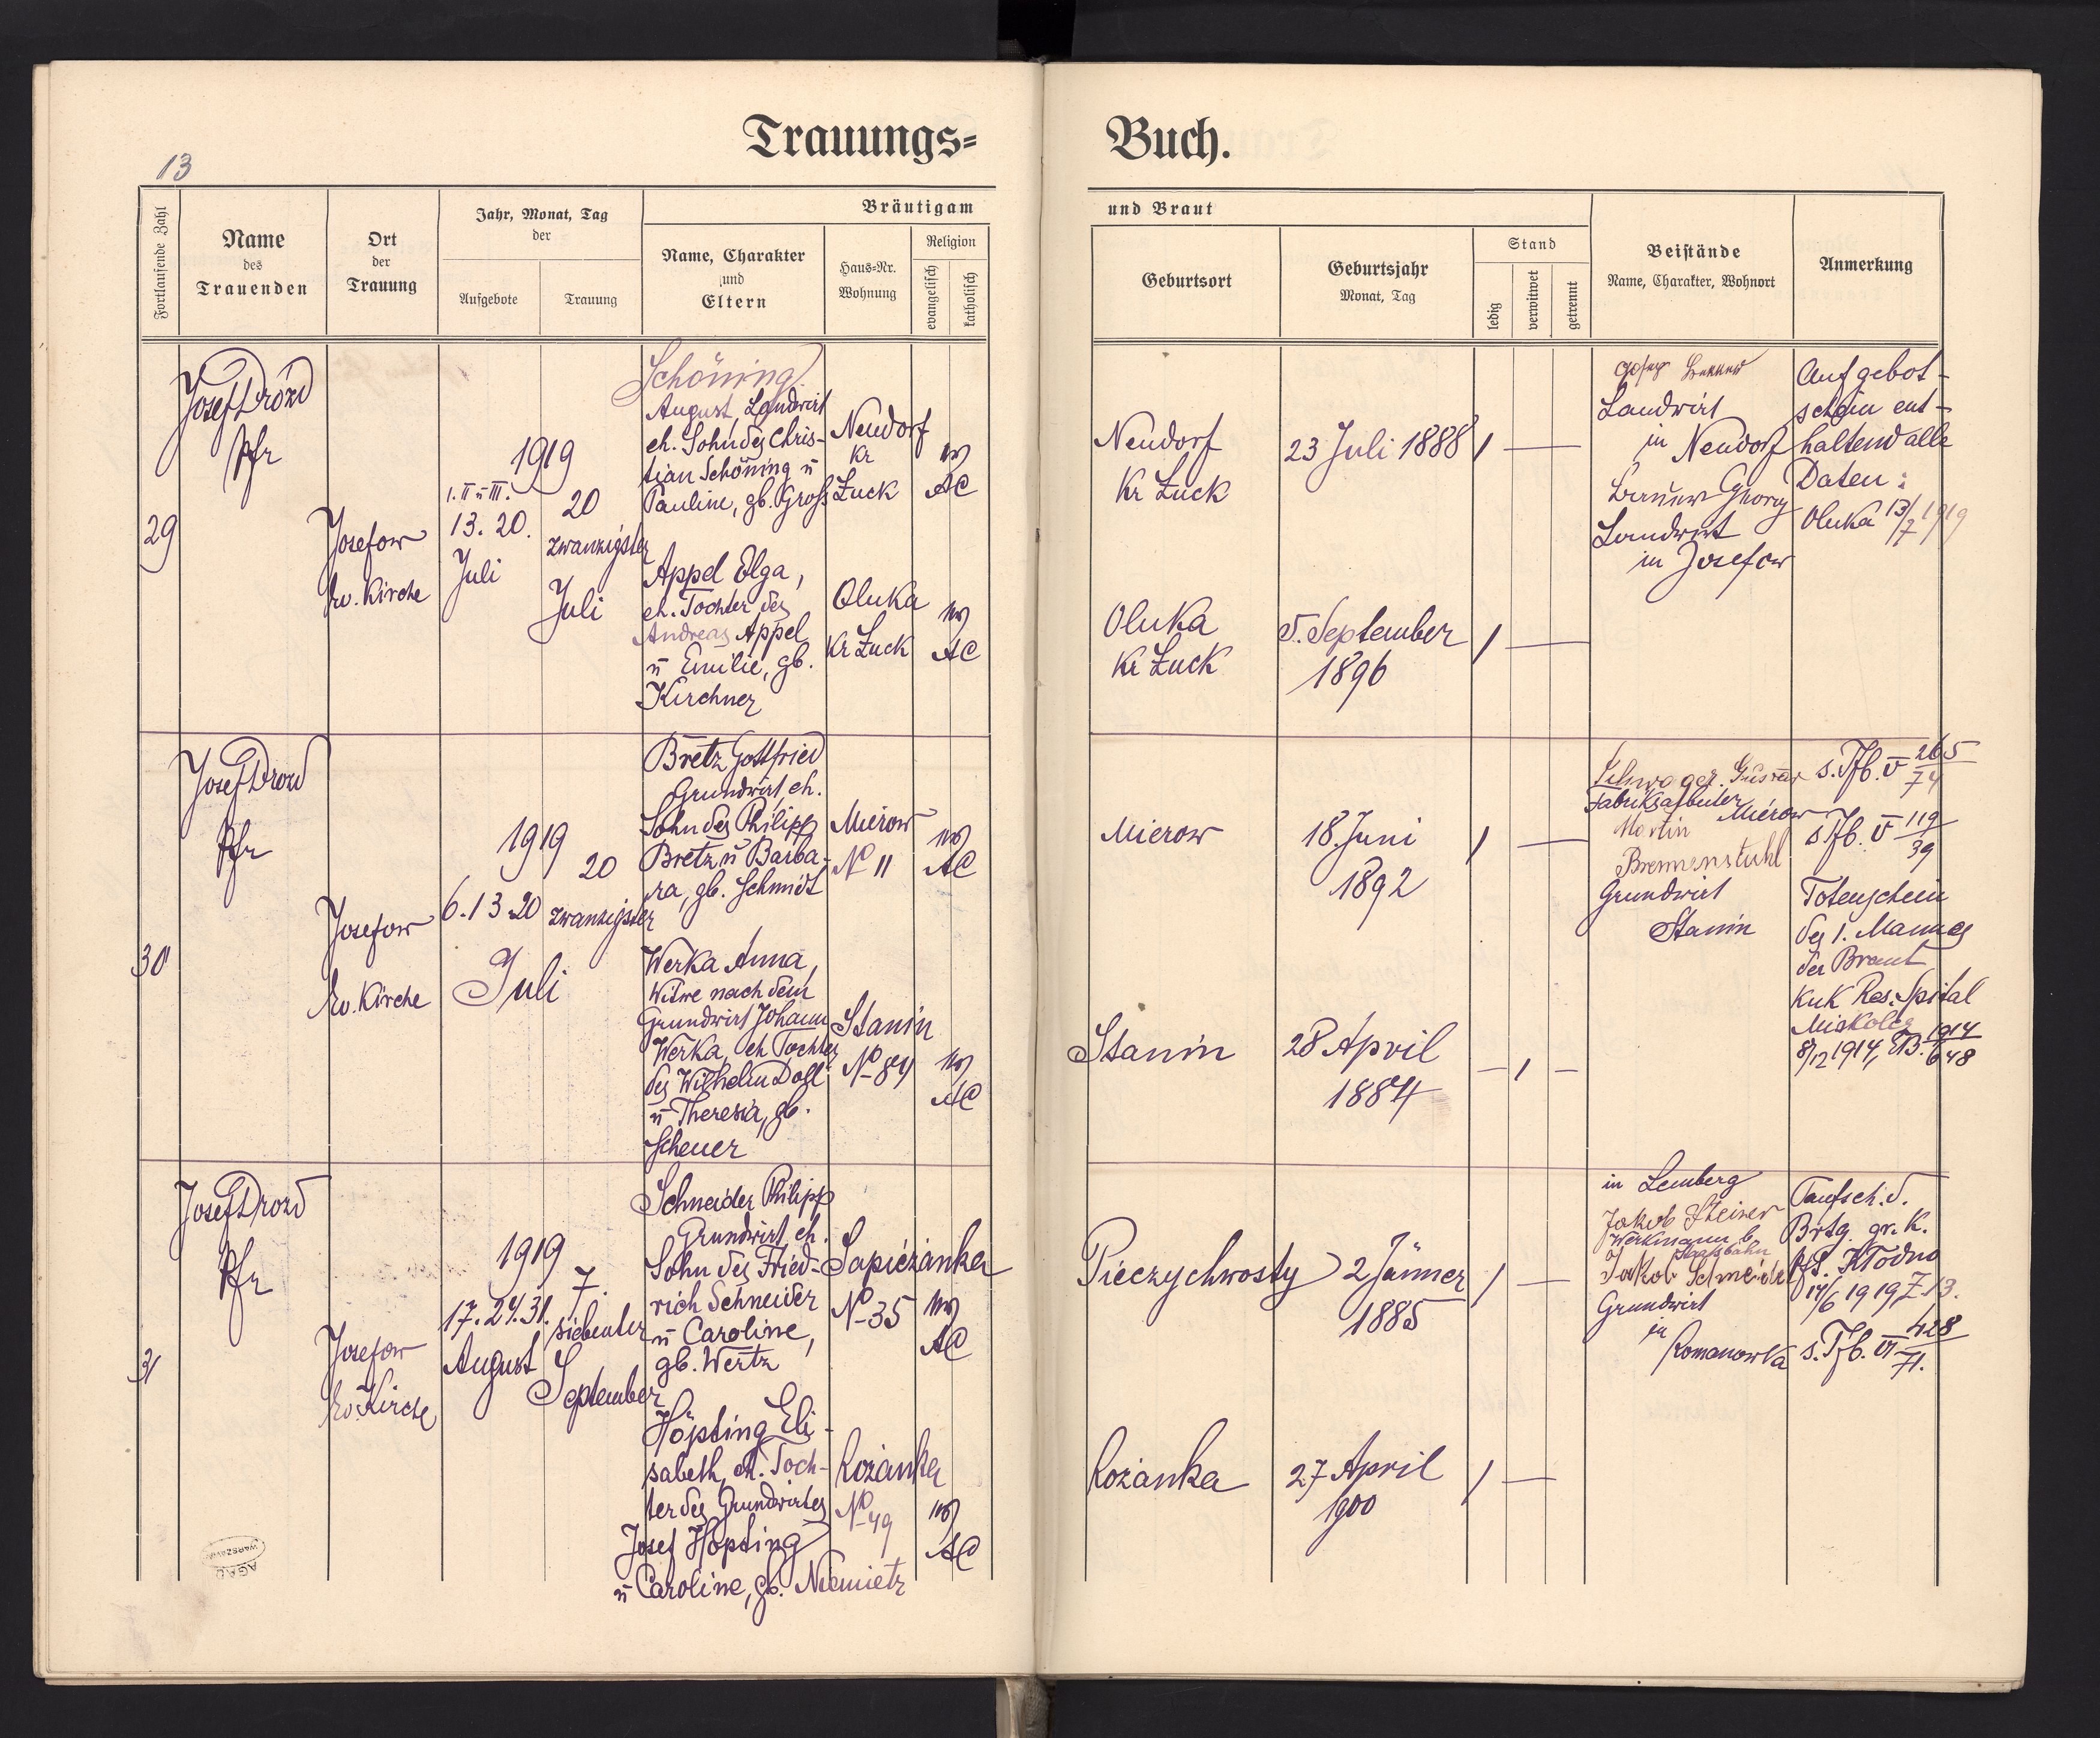 Trauungs=
Buch.
13
Fortlaufende Zahl
Name
des
Trauenden
Ort
der
Trauung
Jahr, Monat, Tag
der
Aufgebote
Trauung
Bräutigam
Name, Charakter
und
Eltern
Haus=Nr.
Wohnung
Religion
evangelisch
katholisch
und Braut
Geburtsort
Geburtsjahr
Monat, Tag
Stand
ledig
verwitwet
getrennt
Beistände
Name, Charakter, Wohnort
Anmerkung
29
Josef Drozd
Pfr
Josefow
Ev. Kirche
1919
I. II u III.
13. 20.
Juli
20
zwanzigster
Juli
Schöning
August, Landwirt
eh. Sohn des Chris-
tian Schöning u
Pauline, gb. Gross
Neudorf
Kr
Łuck
ev
AC
Appel Olga,
eh. Tochter des
Andreas Appel
u Emilie, gb.
Kirchner
Oluka
Kr Łuck
ev
AC
Neudorf
Kr Łuck
23 Juli 1888
Oluka
Kr Łuck
5. September
1896
Josef
Landwirt
in Neudorf
Georg
Landwirt
in Josefow
Aufgebot-
schein ent-
haltend alle
Daten:
Oluka 13/7 1919
30
Josef Drozd
Pfr
Josefow
Ev. Kirche
1919
6. 13 20
Juli
20
zwanzigster
Bretz Gottfried
Grundwirt, eh.
Sohn des Philipp
Bretz u Barba-
ra, gb. Schmidt
Mierow
No 11
ev
AC
Werka Anna,
Witwe nach dem
Grundwirt Johann
Werka, eh Tochter
des Wilhelm Doll
u Theresia, gb.
Scheuer
Stanin
No 84
ev
AC
Mierow
18. Juni
1892
Stanin
28 April
1884
Fabriksarbeiter
Mierow
Martin
Brennenstuhl
Grundwirt
Stanin
s. Tfb. V 265/74
s. Tfb. V 119/39
Totenschein
des 1. Mannes
der Braut
KuK Res. Spital
Miskolcz
8/12 1914, 1914/648
31
Josef Drozd
Pfr
Josefow
Ev. Kirche
1919
17. 24. 31.
August
7.
siebenter
September
Schneider Philipp
Grundwirt, eh.
Sohn des Fried-
rich Schneider
u Caroline,
gb. Wertz
Sapieżanka
No 35
ev
AC
Höpting Eli-
sabeth, eh. Toch-
ter des Grundwirtes
Josef Höpting
u Caroline, gb. Niemietz
Rożanka
No 49
ev
AC
Pieczychwosty
2 Jänner
1885
Rożanka
27 April
1900
in Lemberg
Jakob Steiner
Werkmann b.
Staatsbahn
Jakob Schneider
Grundwirt
in
Romanowka
Taufsch. d.
Brtg. gr. K.
Kłodno
14/6 1919 Z 13.
s. Tfb. VI 428/71.
AGAD
WARSZAWA